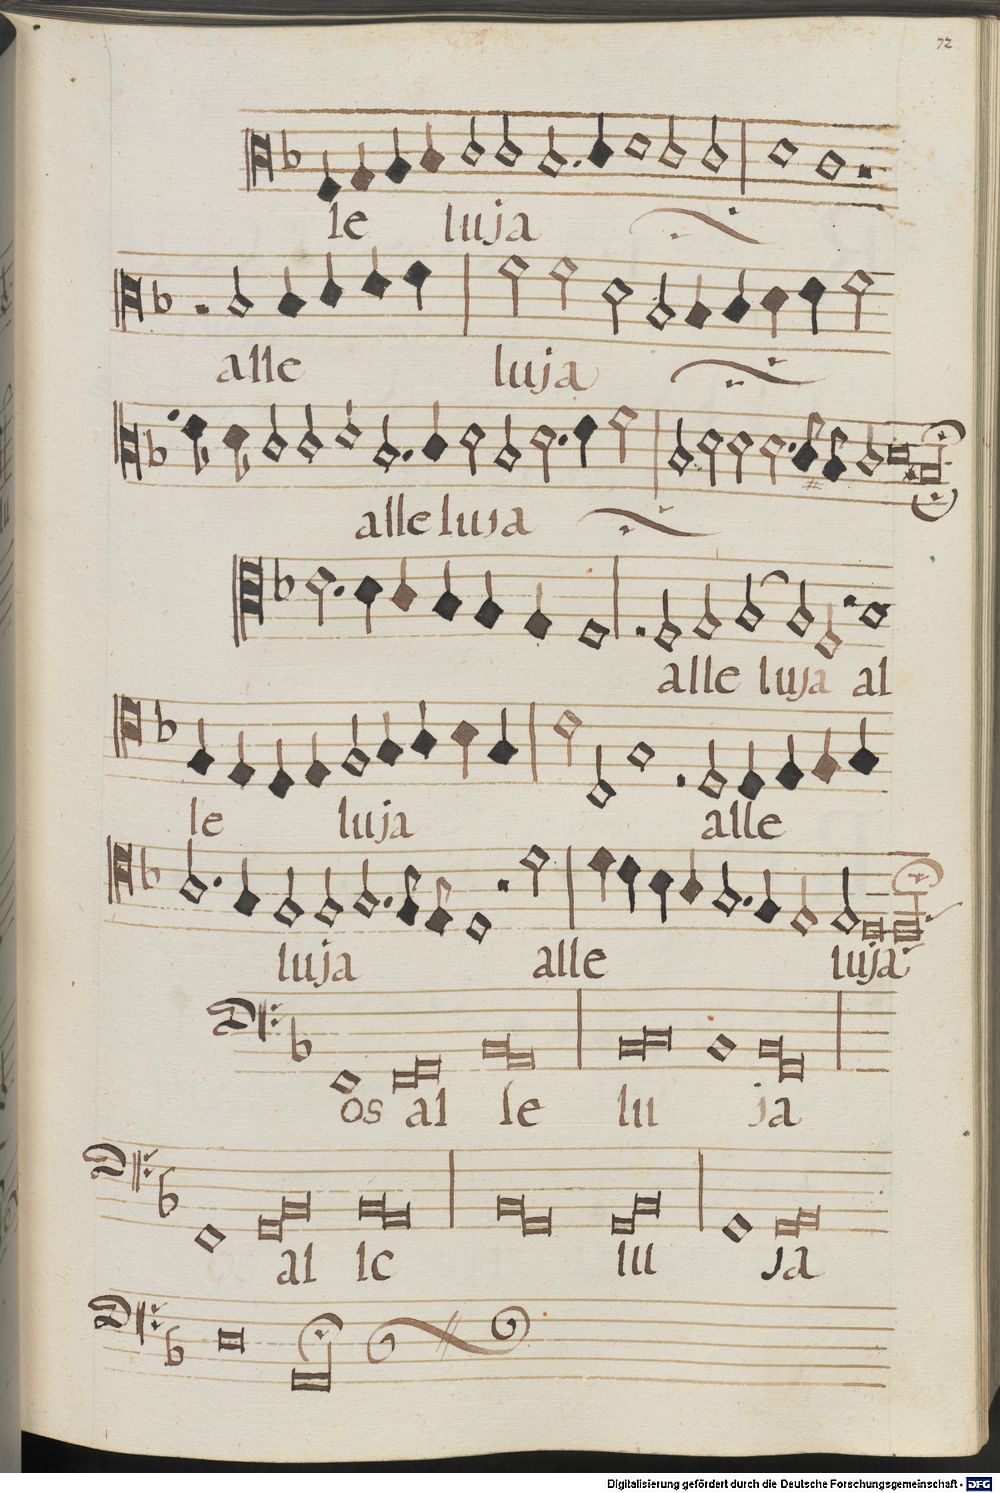 72
le luja
alle luja
alleluja
alle luja al
le luja alle
luja alle luja
os al le lu ja
al le lu ja
Digitalisierung gefördert durch die Deutsche Forschungsgemeinschaft - DFG